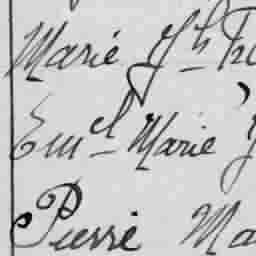 Marie Jh
Emel Marie
Pierre Ma